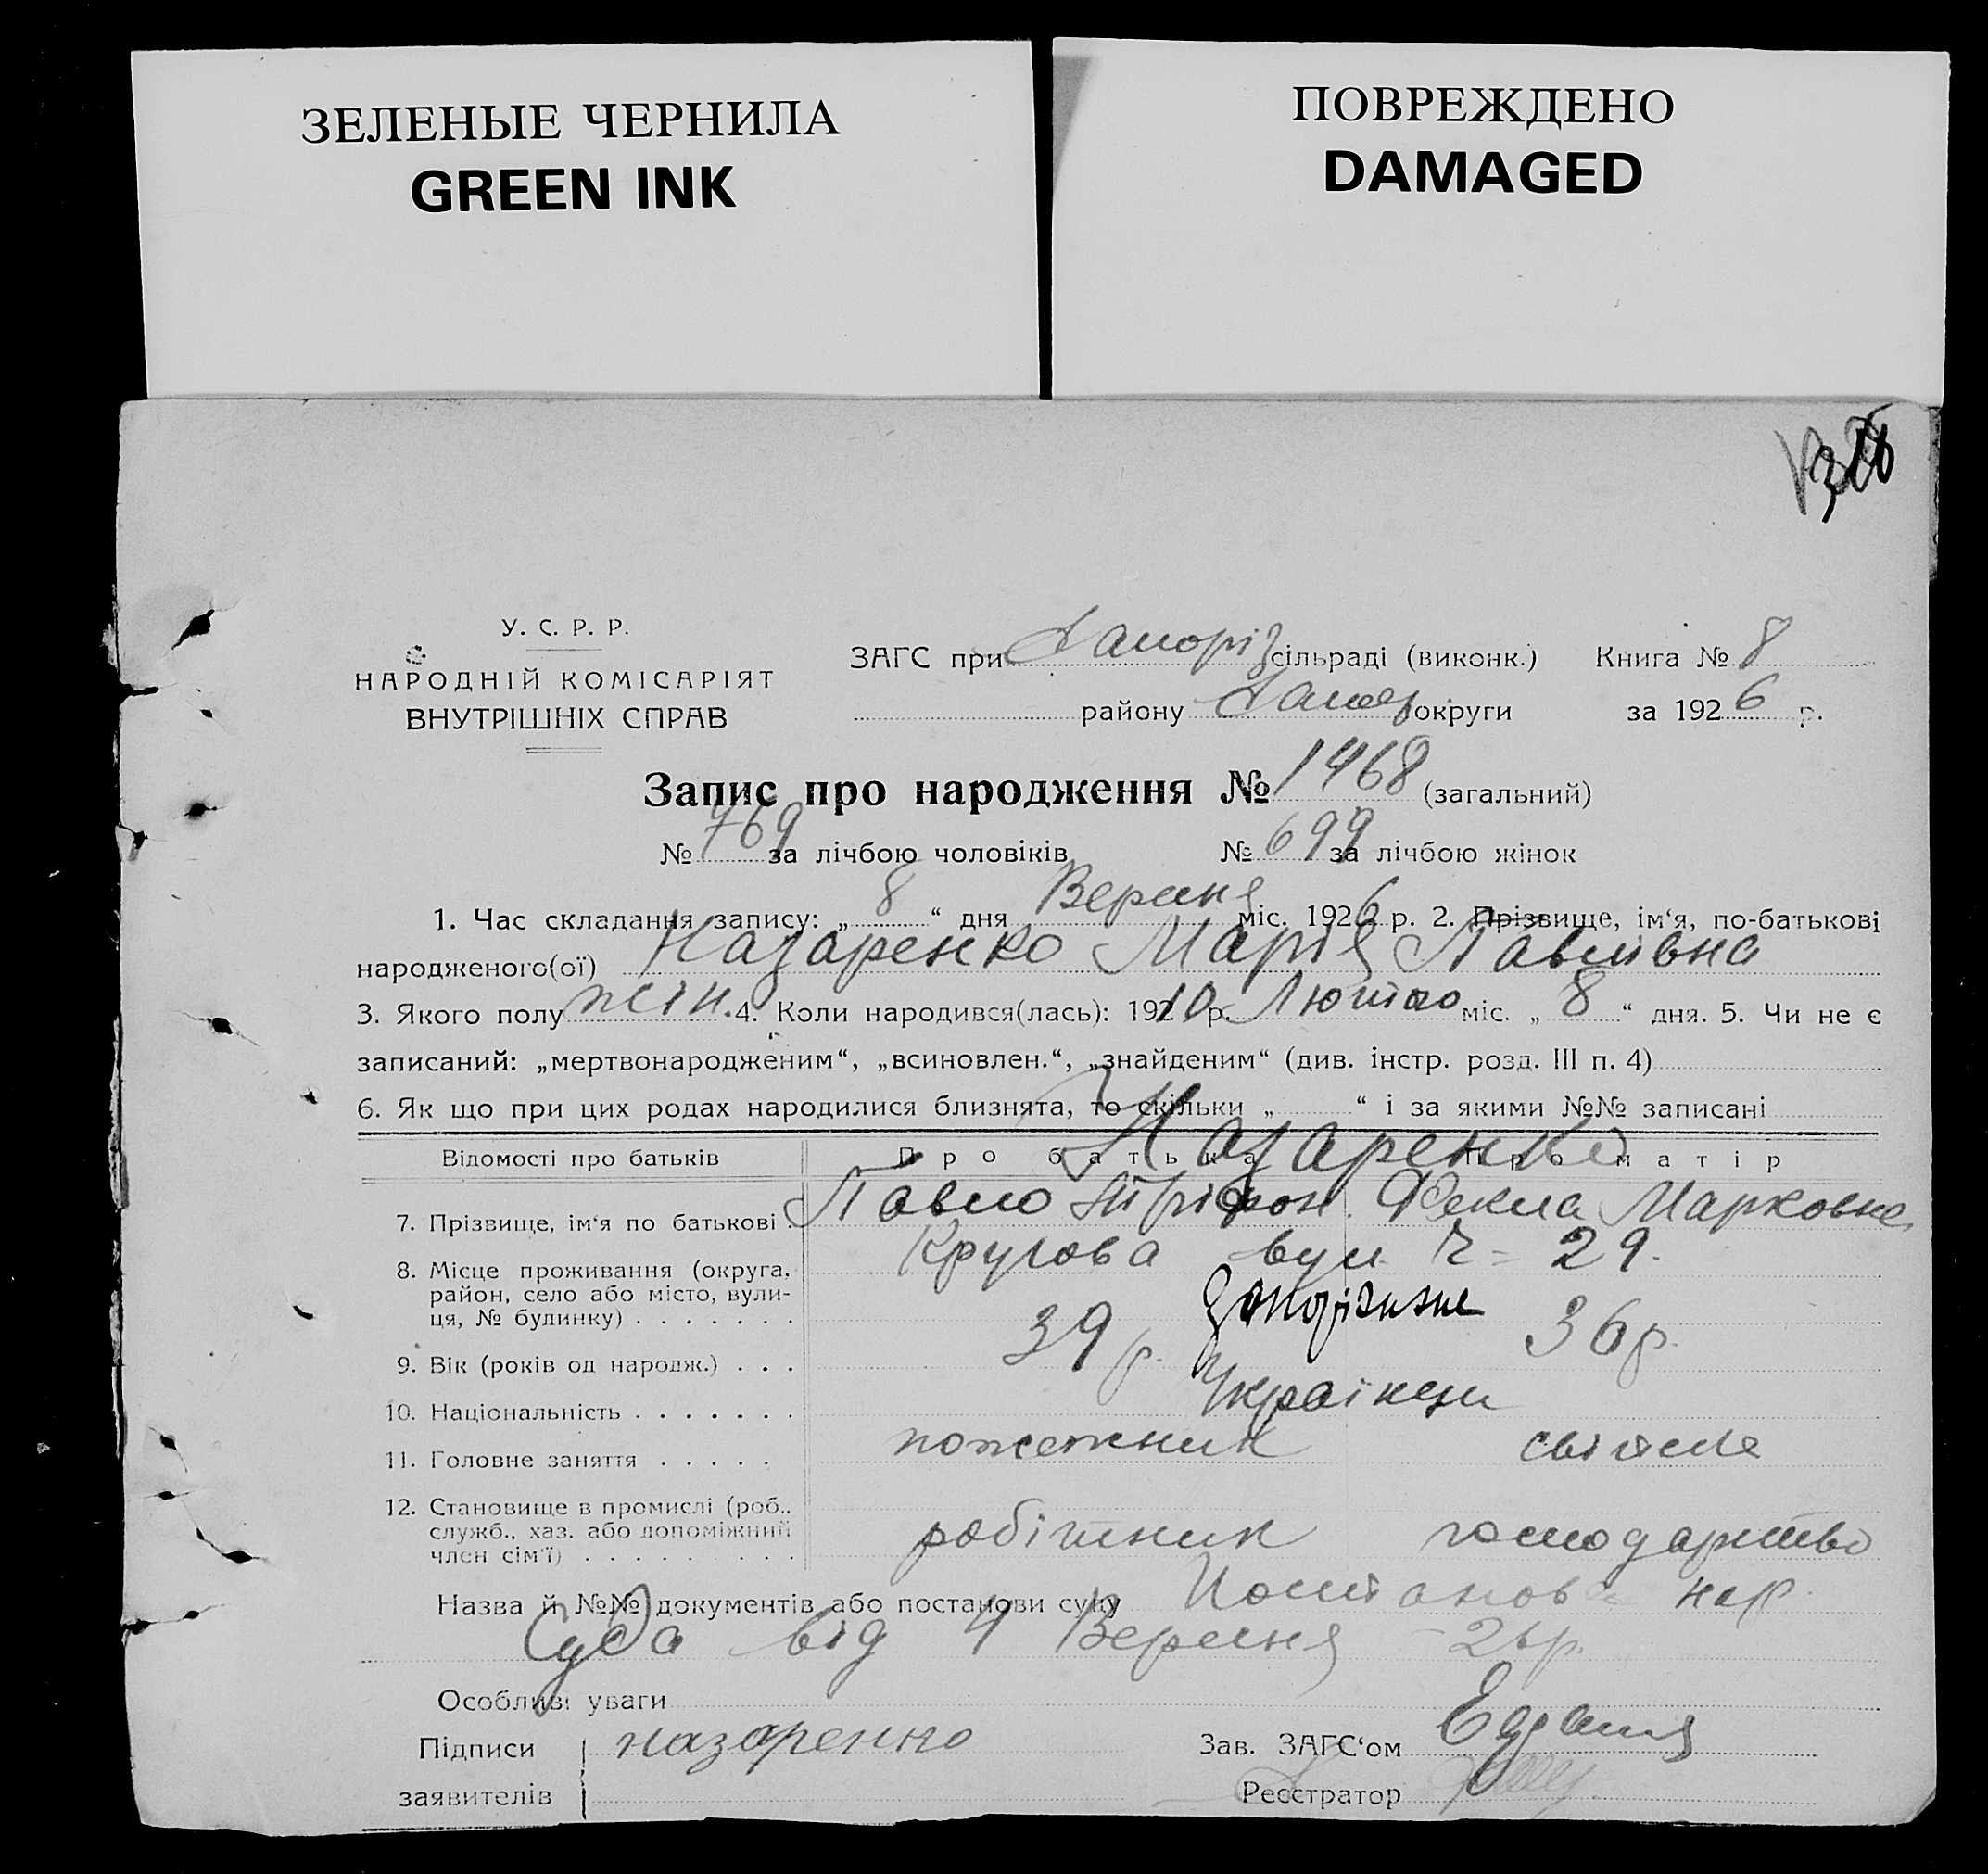 ЗЕЛЕНЫЕ ЧЕРНИЛА
GREEN INK
ПОВРЕЖДЕНО
DAMAGED
У. С. Р. Р.
НАРОДНІЙ КОМІСАРІЯТ
ВНУТРІШНІХ СПРАВ
ЗАГС при Запоріз сільраді (виконк.) Книга № 8
району Запор округи за 1926 р.
Запис про народження № 1468 (загальний)
№ 769 за лічбою чоловіків № 699 за лічбою жінок
1. Час складання запису: „ 8 “ дня Вересня міс. 1926 р. 2. Прізвище, ім‘я, по-батькові
народженого(ої) Назаренко Марія Павлівна
3. Якого полу жін. 4. Коли народився(лась): 1910 р. Лютого міс. „ 8 “ дня. 5. Чи не є
записаний: „мертвонародженим“, „всиновлен.“, „знайденим“ (див. інстр. розд. III п. 4)
6. Як що при цих родах народилися близнята, то скільки „ “ і за якими №№ записані
Відомості про батьків Про батька Про матір
Назаренки
7. Прізвище, ім‘я по батькові Павло Тріфон. Фекла Марковна
8. Місце проживання (округа, Кругова вул. ч = 29.
район, село або місто, вули-
ця, № будинку)
9. Вік (років од народж.) 39 р. 36 р.
10. Національність Українци
11. Головне заняття пожежник
12. Становище в промислі (роб.,
служб., хаз. або допоміжний робітник господарство
член сім‘ї)
Назва й №№ документів або постанови суду Постанова нар.
Суда від 4 Вересня 26 р.
Особливі уваги
Підписи назаренко Зав. ЗАГС‘ом
заявителів Реєстратор